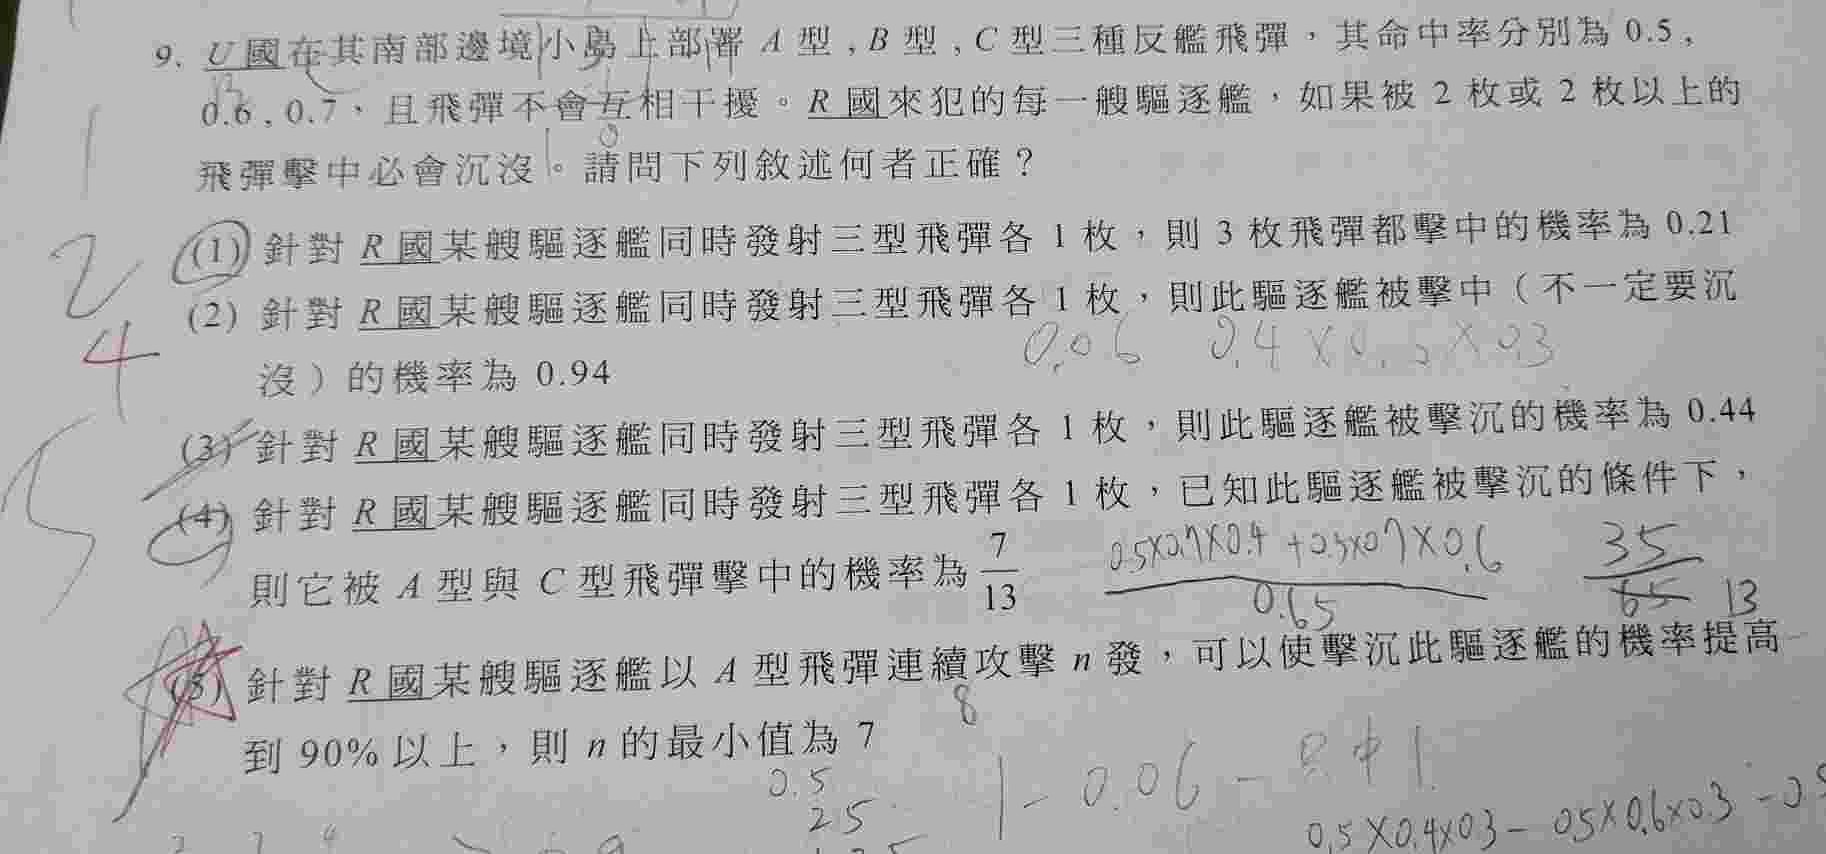 9. U國在其南部邊境小島上部署 A 型,B 型,C 型三種反艦飛彈,其命中率分別為 0.5,
0.6,0.7,且飛彈不會互相干擾。R 國來犯的每一艘驅逐艦,如果被 2 枚或 2 枚以上的
飛彈擊中必會沉沒。請問下列敘述何者正確?
1
2
4
5
(1) 針對 R 國某艘驅逐艦同時發射三型飛彈各 1 枚,則 3 枚飛彈都擊中的機率為 0.21
(2) 針對 R 國某艘驅逐艦同時發射三型飛彈各 1 枚,則此驅逐艦被擊中(不一定要沉
0.06 0.4×0.5×0.3
沒)的機率為 0.94
(3) 針對 R 國某艘驅逐艦同時發射三型飛彈各 1 枚,則此驅逐艦被擊沉的機率為 0.44
(4) 針對 R 國某艘驅逐艦同時發射三型飛彈各 1 枚,已知此驅逐艦被擊沉的條件下,
則它被 A 型與 C 型飛彈擊中的機率為 7/13
0.5×0.7×0.4+0.5×0.7×0.6
0.65
35
65 13
(5) 針對 R 國某艘驅逐艦以 A 型飛彈連續攻擊 n 發,可以使擊沉此驅逐艦的機率提高
8
到 90% 以上,則 n 的最小值為 7
0.5
25
1-0.06-只中1
0.5×0.4×0.3-0.5×0.6×0.3-0.5